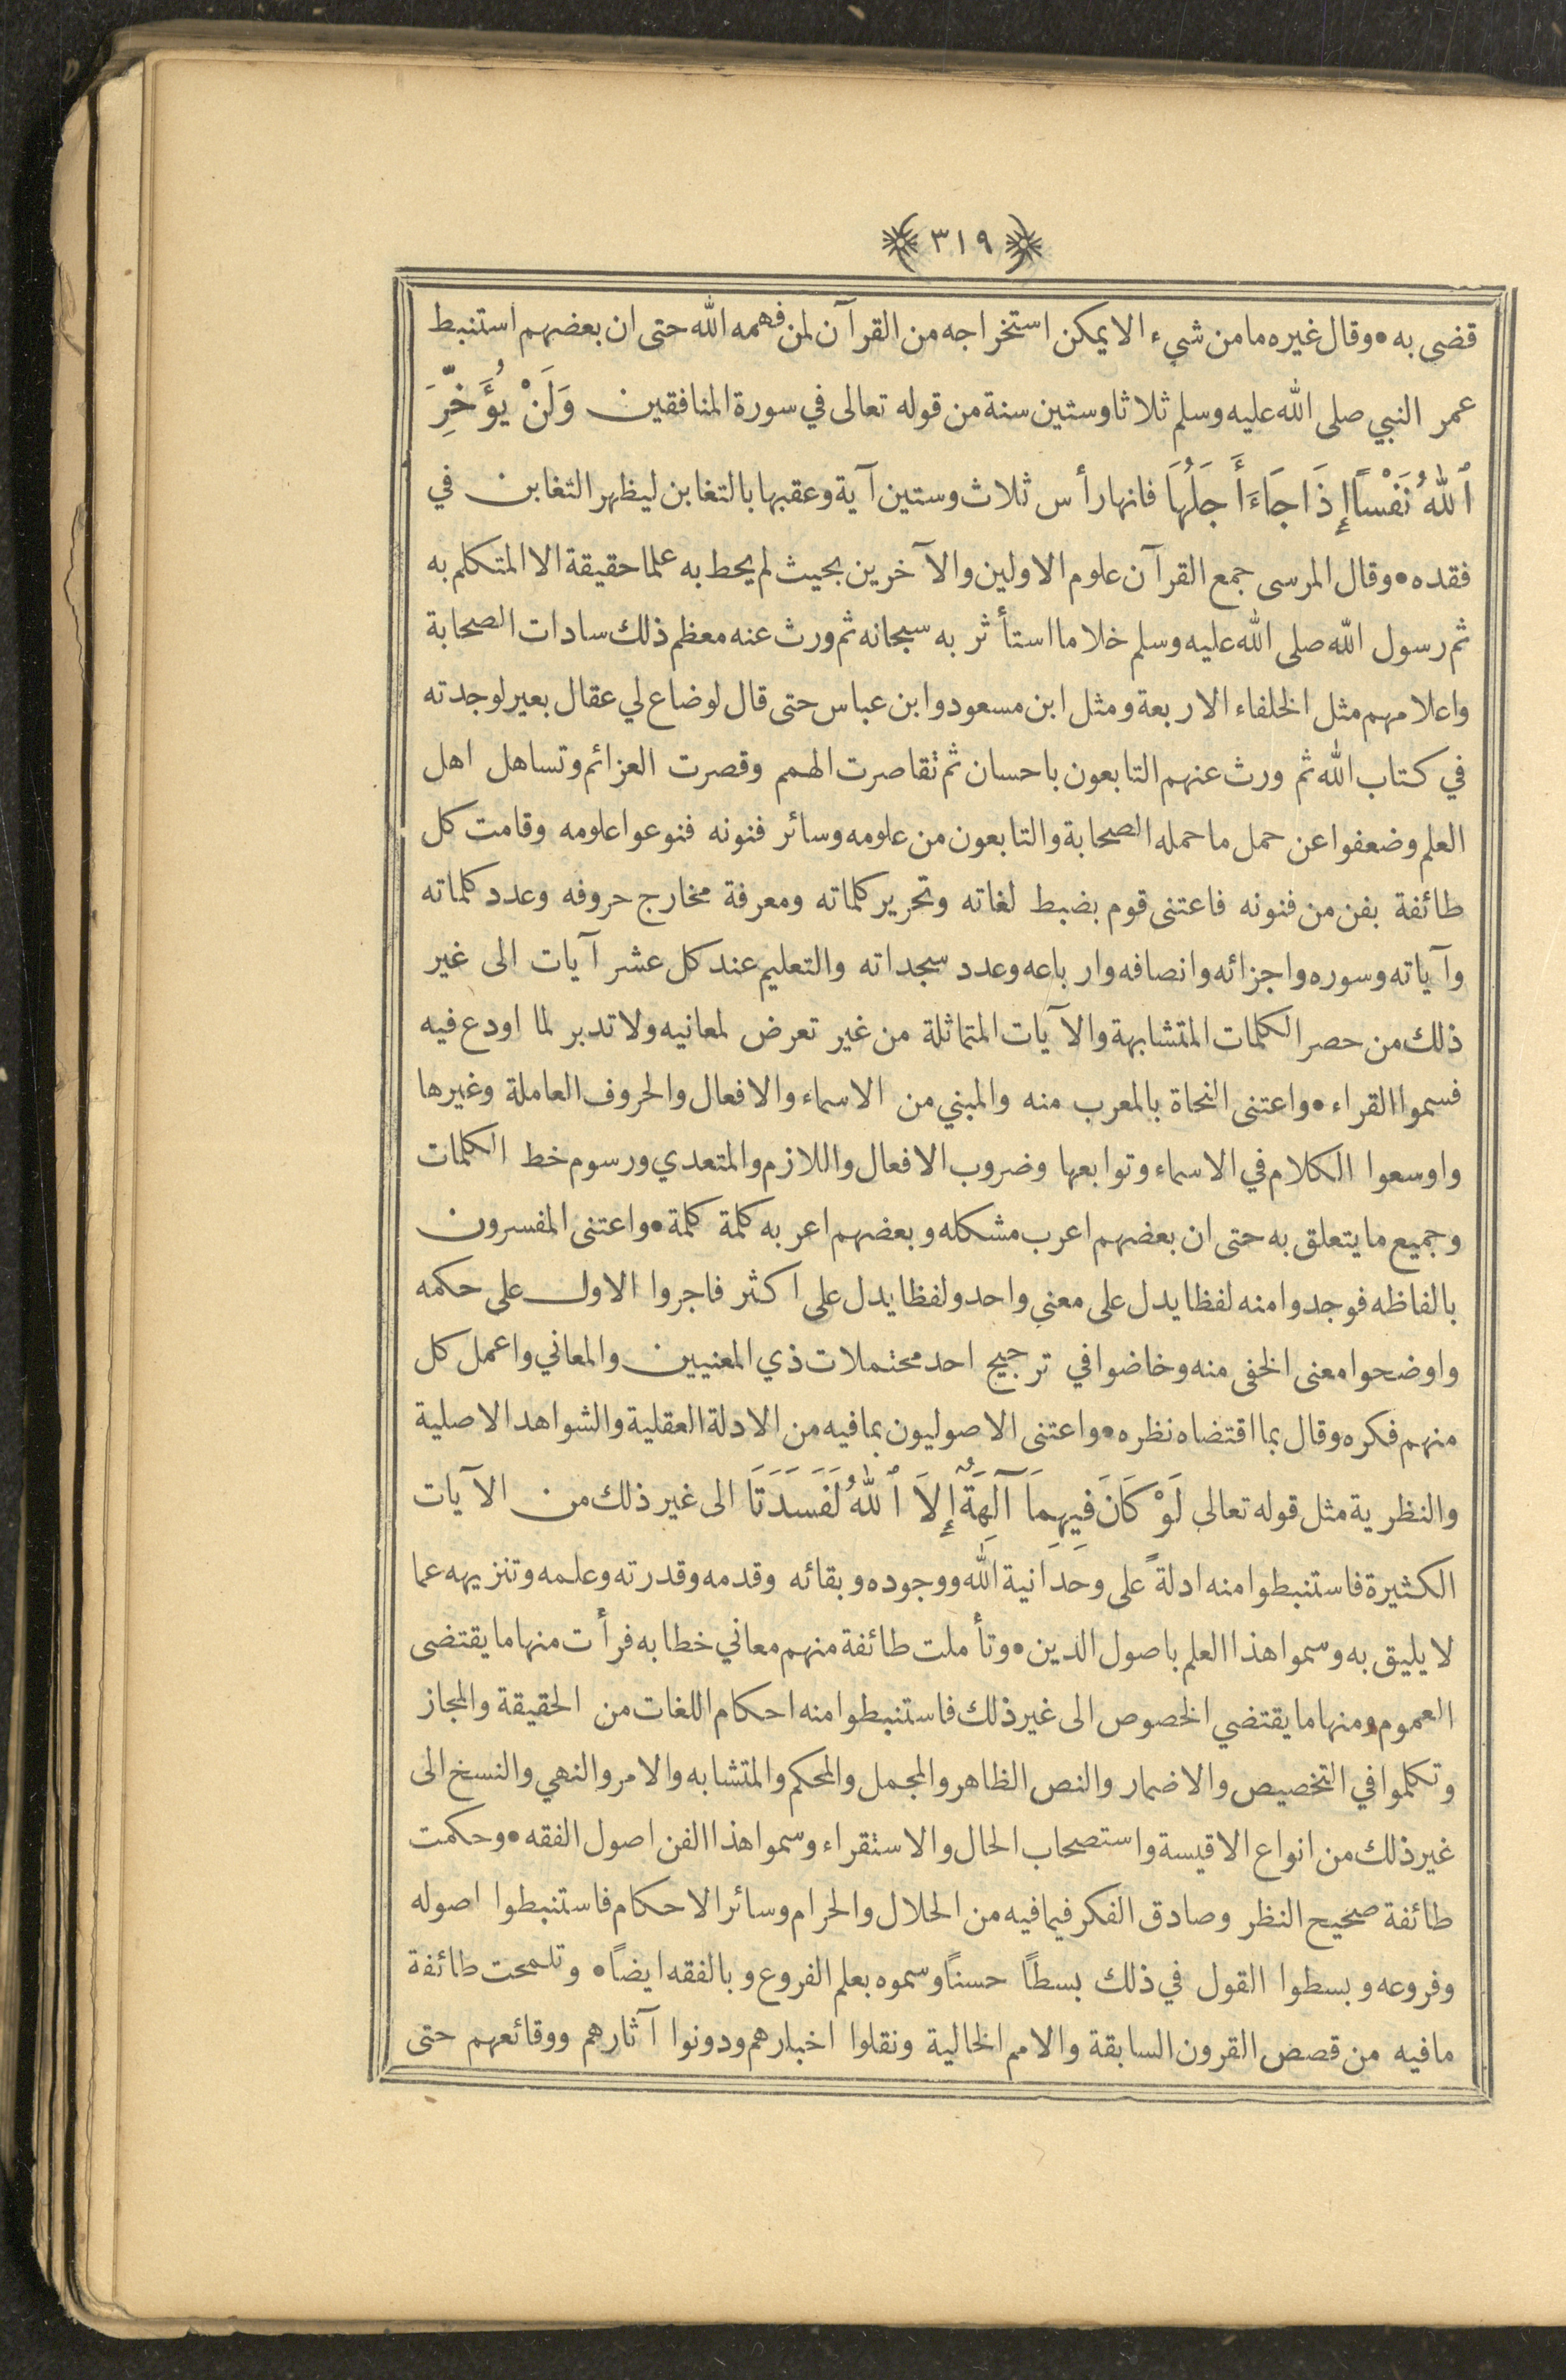 ﴿٣١٩﴾
قضى به • وقال غيره ما من شيء الا يمكن استخراجه من القرآن لمن فهمه الله حتى ان بعضهم استنبط
عمر النبي صلى الله عليه وسلم ثلاثا وستين سنة من قوله تعالى في سورة المنافقين وَلَنْ يُؤَخِّرَ
ٱللهُ نَفْسًا إِذَا جَاءَ أَجَلُهَا فانها رأس ثلاث وستين آية وعقبها بالتغابن ليظهر التغابن في
فقده • وقال المرسى جمع القرآن علوم الاولين والآخرين بحيث لم يحط به علما حقيقة الا المتكلم به
ثم رسول الله صلى الله عليه وسلم خلا ما استأثر به سبحانه ثم ورث عنه معظم ذلك سادات الصحابة
واعلامهم مثل الخلفاء الاربعة ومثل ابن مسعود وابن عباس حتى قال لو ضاع لي عقال بعير لوجدته
في كتاب الله ثم ورث عنهم التابعون باحسان ثم تقاصرت الهمم وقصرت العزائم وتساهل اهل
العلم وضعفوا عن حمل ما حمله الصحابة والتابعون من علومه وسائر فنونه فنوعوا علومه وقامت كل
طائفة بفن من فنونه فاعتنى قوم بضبط لغاته وتحرير كلماته ومعرفة مخارج حروفه وعدد كلماته
وآياته وسوره واجزائه وانصافه وارباعه وعدد سجداته والتعليم عند كل عشر آيات الى غير
ذلك من حصر الكلمات المتشابهة والآيات المتماثلة من غير تعرض لمعانيه ولا تدبر لما اودع فيه
فسموا القراء • واعتنى النحاة بالمعرب منه والمبني من الاسماء والافعال والحروف العاملة وغيرها
واوسعوا الكلام في الاسماء وتوابعها وضروب الافعال واللازم والمتعدي ورسوم خط الكلمات
وجميع ما يتعلق به حتى ان بعضهم اعرب مشكله وبعضهم اعربه كلمة كلمة • واعتنى المفسرون
بالفاظه فوجدوا منه لفظا يدل على معنى واحد ولفظا يدل على اكثر فاجروا الاول على حكمه
واوضحوا معنى الخفى منه وخاضوا في ترجيح احد محتملات ذي المعنيين والمعاني واعمل كل
منهم فكره وقال بما اقتضاه نظره • واعتنى الاصوليون بما فيه من الادلة العقلية والشواهد الاصلية
والنظرية مثل قوله تعالى لَوْ كَانَ فِيهِمَا آلِهَةٌ إِلاَّ ٱللهُ لَفَسَدَتَا الى غير ذلك من الآيات
الكثيرة فاستنبطوا منه ادلةً على وحدانية الله ووجوده وبقائه وقدمه وقدرته وعلمه وتنزيهه عما
لا يليق به وسموا هذا العلم باصول الدين • وتأملت طائفة منهم معاني خطابه فرأت منها ما يقتضى
العموم ومنها ما يقتضي الخصوص الى غير ذلك فاستنبطوا منه احكام اللغات من الحقيقة والمجاز
وتكلموا في التخصيص والاضمار والنص الظاهر والمجمل والمحكم والمتشابه والامر والنهي والنسخ الى
غير ذلك من انواع الاقيسة واستصحاب الحال والاستقراء وسموا هذا الفن اصول الفقه • وحكمت
طائفة صحيح النظر وصادق الفكر فيما فيه من الحلال والحرام وسائر الاحكام فاستنبطوا اصوله
وفروعه وبسطوا القول في ذلك بسطاً حسناً وسموه بعلم الفروع وبالفقه ايضاً • وتلمحت طائفة
ما فيه من قصص القرون السابقة والامم الخالية ونقلوا اخبارهم ودونوا آثارهم ووقائعهم حتى